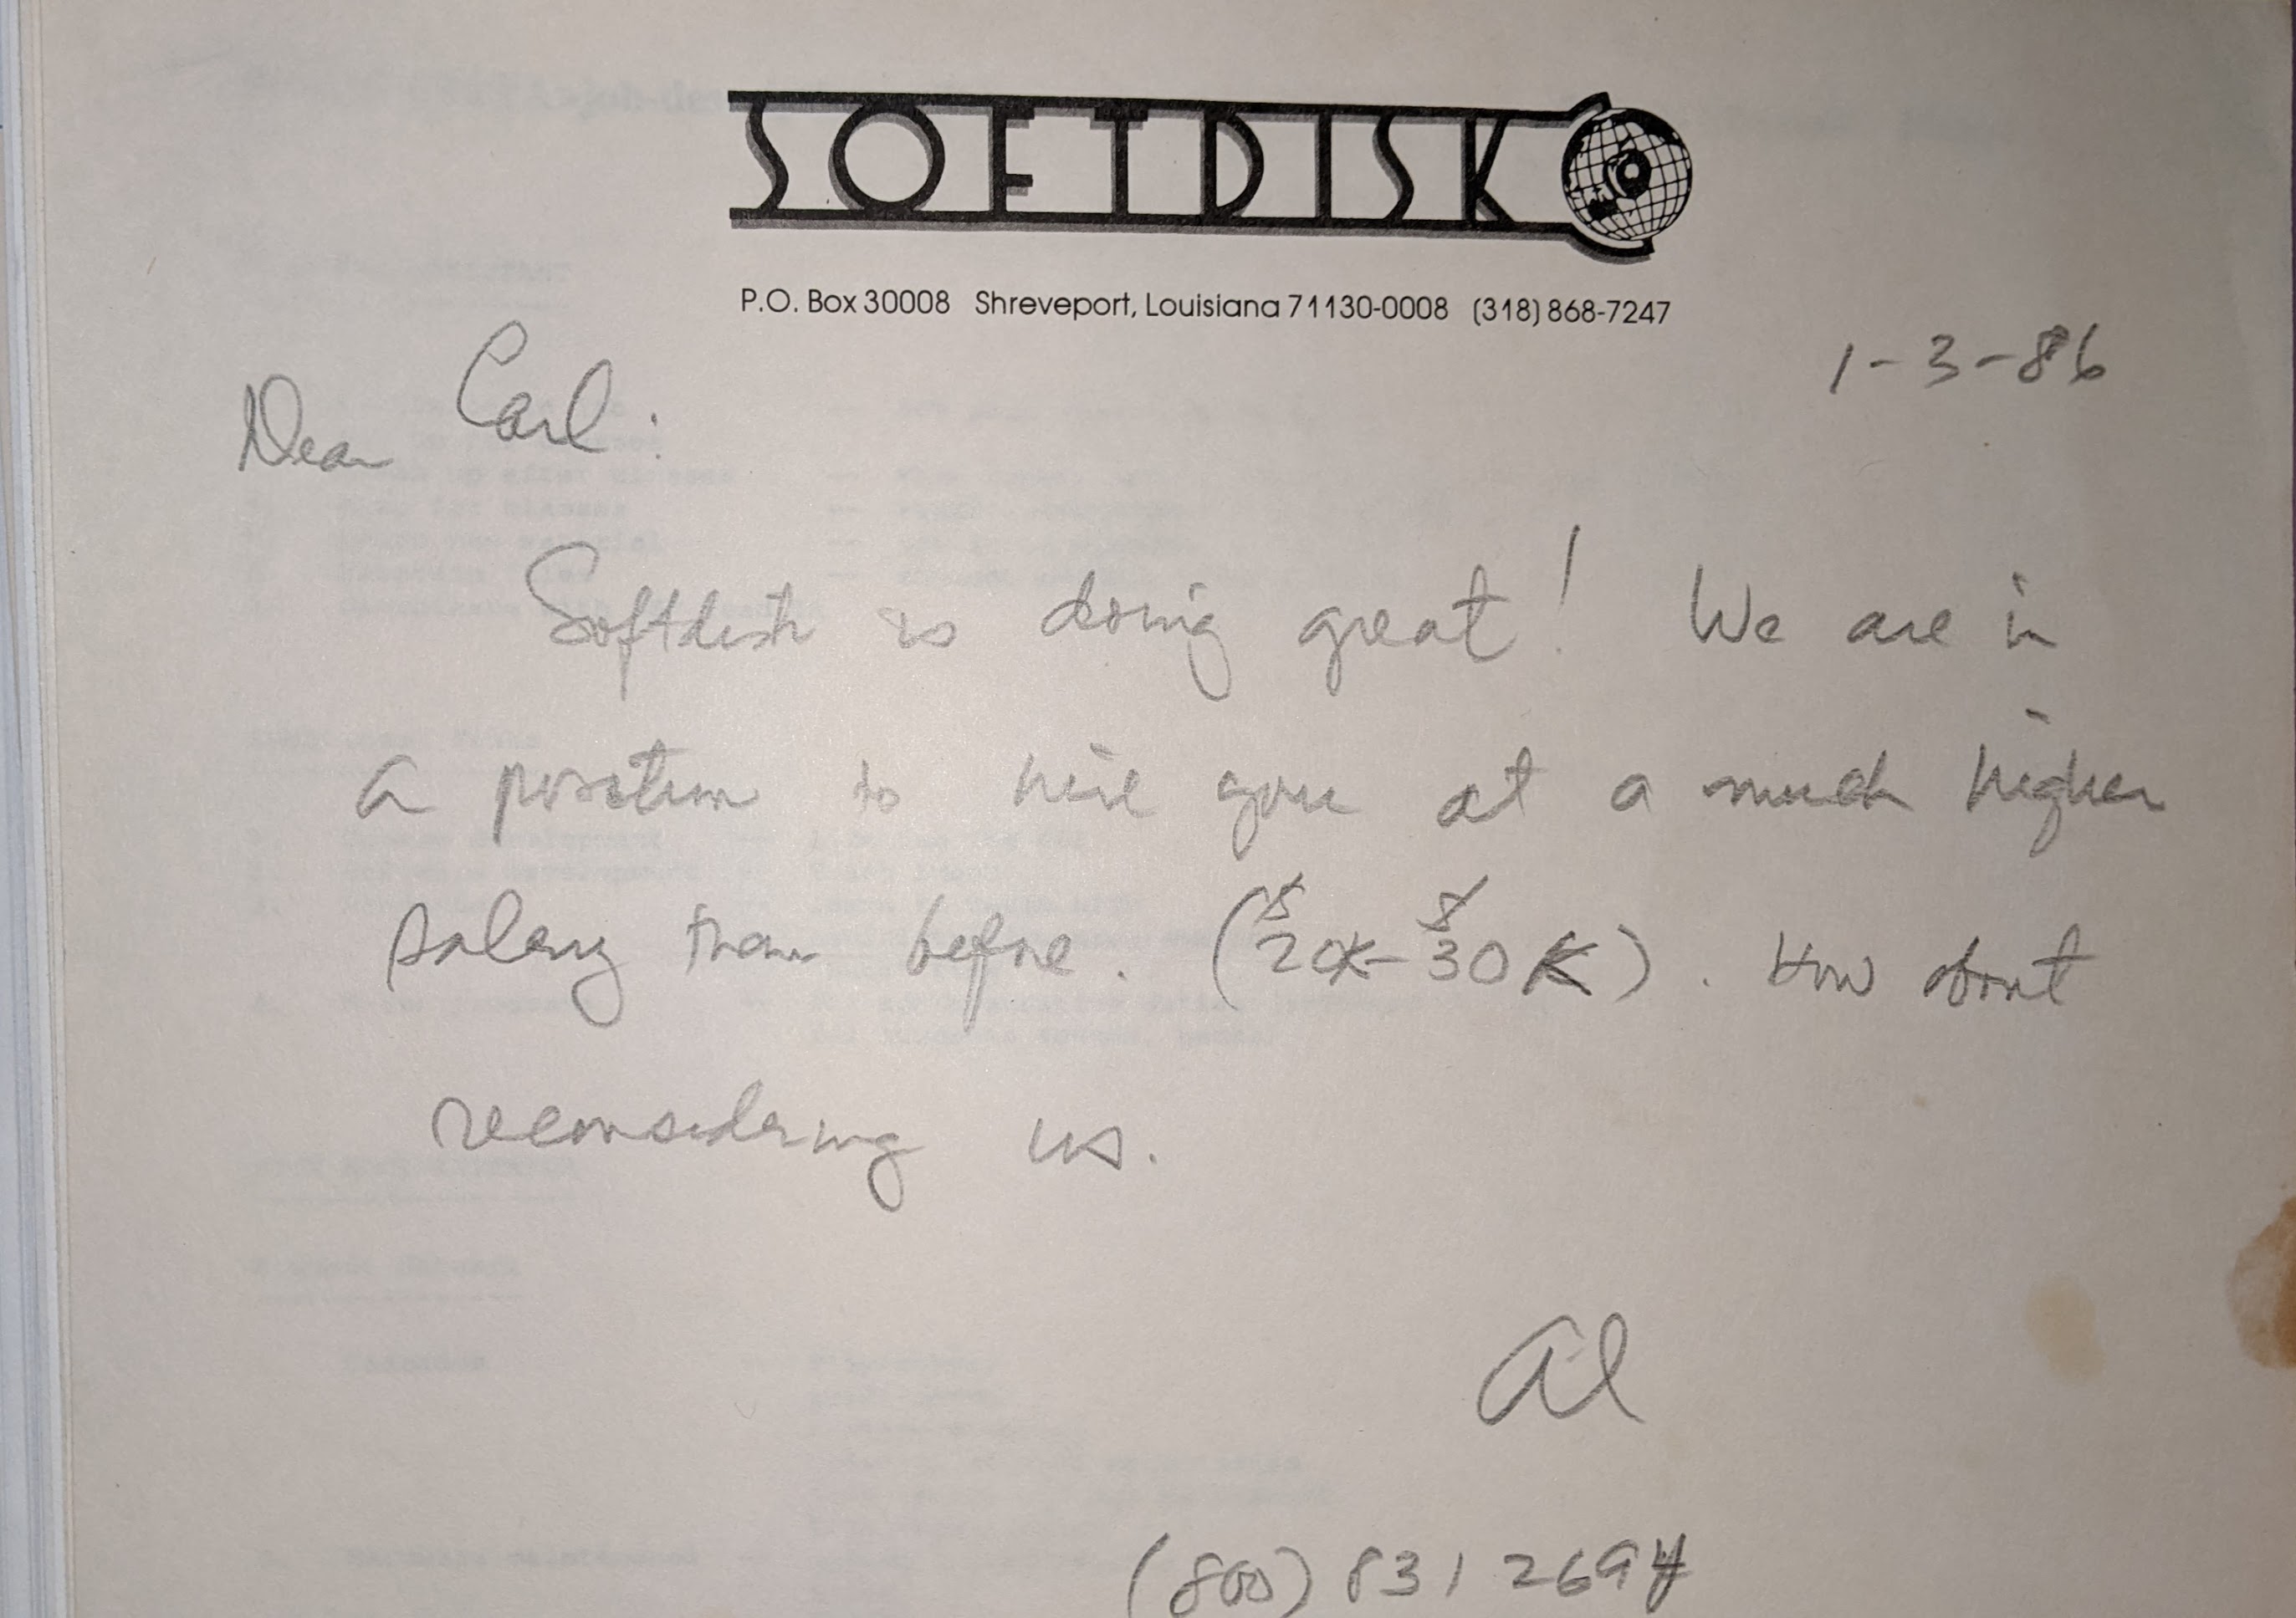 SOFTDISK
P.O. Box 30008 Shreveport, Louisiana 71130-0008 (318) 868-7247
1-3-86
Dear Carl:
Softdisk is doing great! We are in
a position to hire you at a much higher
salary than before. ($20K-$30K). How about
reconsidering us.
Al
(800) 831 2694